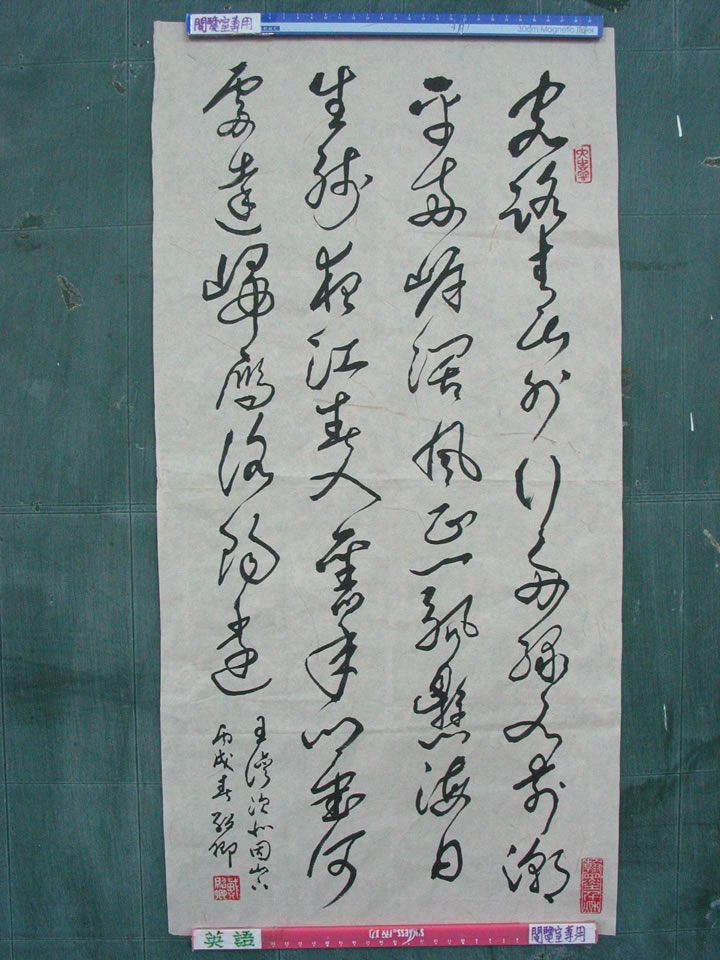 閱覽室專用
30cm Magnetic Ruler
客路青山外行舟綠水前潮
平兩岸闊風正一帆懸海日
生殘夜江春入舊年鄉書何
處達歸雁洛陽邊
王灣次北固山下
丙戌春
英語
閱覽室專用